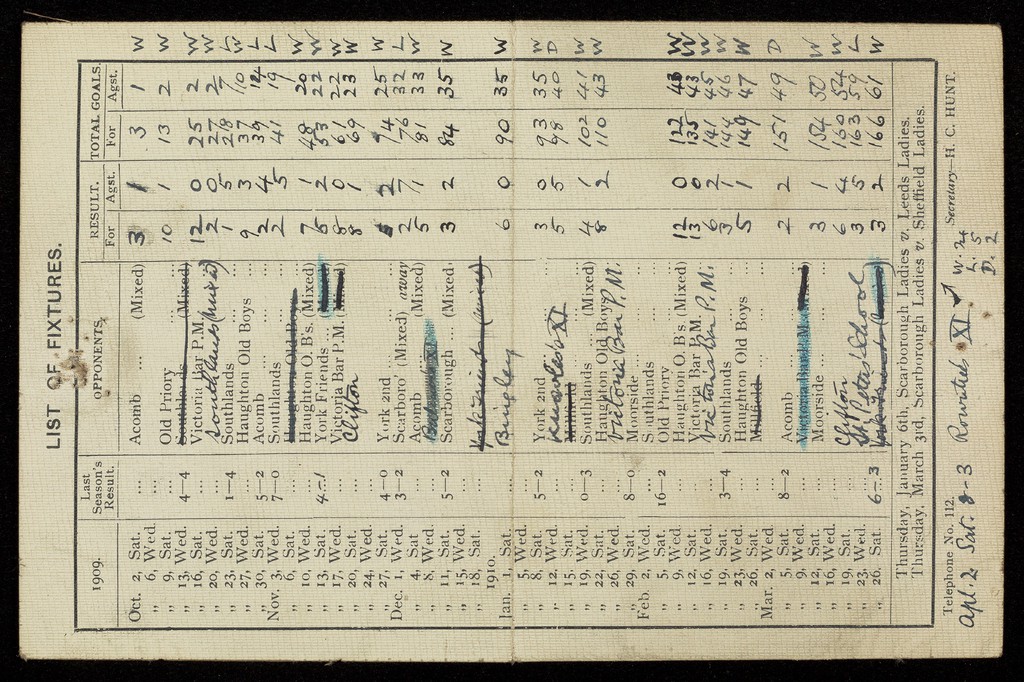 LIST OF FIXTURES.
1909. Last Season's Result. OPPONENTS. RESULT. For Agst. TOTAL GOALS. For Agst.
Oct. 2, Sat. ... Acomb ... (Mixed) 3 1 3 1 W
„ 6, Wed.
„ 9, Sat. ... Old Priory ... 10 1 13 2 W
„ 13, Wed. 4—4 Southlands (Mixed)
„ 16, Sat. ... Victoria Bar P.M. 12 0 25 2 W
„ 20, Wed. Southlands (mixed) 2 0 27 2 W
„ 23, Sat. 1—4 Southlands ... 1 5 28 7 L
„ 27, Wed. ... Haughton Old Boys 9 3 37 10 W
„ 30, Sat. 5—2 Acomb ... 2 4 39 14 L
Nov. 3, Wed. 7—0 Southlands ... 2 5 41 19 L
„ 6, Sat. ... Haughton Old Boys
„ 10, Wed. ... Haughton O. B's. (Mixed) 7 1 48 20 W
„ 13, Sat. 4—1 York Friends 5 2 53 22 W
„ 17, Wed. ... Victoria Bar P.M. (Mixed) 8 0 61 22 W
„ 20, Sat. Clifton 8 1 69 23 W
„ 24, Wed.
„ 27, Sat. 4—0 York 2nd ... 5 2 74 25 W
Dec. 1, Wed. 3—2 Scarboro' (Mixed) away 2 7 76 32 L
„ 4, Sat. ... Acomb ... (Mixed) 5 1 81 33 W
„ 8, Wed.
„ 11, Sat. 5—2 Scarborough ... (Mixed) 3 2 84 35 W
„ 15, Wed.
„ 18, Sat.
1910.
Jan. 1, Sat. Bingley 6 0 90 35 W
„ 5, Wed.
„ 8, Sat. 5—2 York 2nd ... 3 0 93 35 W
„ 12, Wed. Knowles XI 5 5 98 40 D
„ 15, Sat.
„ 19, Wed. 0—3 Southlands ... (Mixed) 4 1 102 41 W
„ 22, Sat. ... Haughton Old Boys 8 2 110 43 W
„ 26, Wed. Victoria Bar P.M.
„ 29, Sat. 8—0 Moorside ...
Feb. 2, Wed. ... Southlands ...
„ 5, Sat. 16—2 Old Priory ...
„ 9, Wed. ... Haughton O. B's. (Mixed) 12 0 122 43 W
„ 12, Sat. ... Victoria Bar P.M. 13 0 135 43 W
„ 16, Wed. Victoria Bar P.M. 6 2 141 45 W
„ 19, Sat. 3—4 Southlands ... 3 1 144 46 W
„ 23, Wed. ... Haughton Old Boys 5 1 149 47 W
„ 26, Sat. Millfield
Mar. 2, Wed. 2 2 151 49 D
„ 5, Sat. 8—2 Acomb ...
„ 9, Wed. ... Victoria Bar P.M. Mixed
„ 12, Sat. ... Moorside ... 3 1 154 50 W
„ 16, Wed.
„ 19, Sat. Clifton 6 4 160 54 W
„ 23, Wed. St. Peters School 3 5 163 59 L
„ 26, Sat. 6—3 3 2 166 61 W
Thursday, January 6th, Scarborough Ladies v. Leeds Ladies.
Thursday, March 3rd, Scarborough Ladies v. Sheffield Ladies.
Telephone No. 112. Secretary—H. C. HUNT.
Apl. 2 Sat. 8-3 Rowntrees XI W. 24
L. 5
D. 2